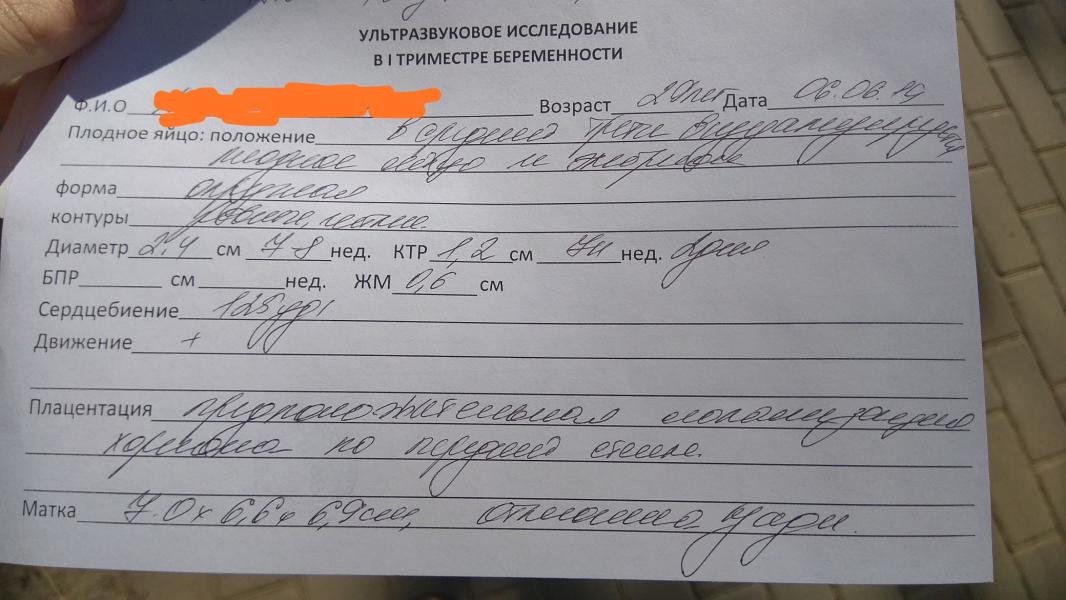 УЛЬТРАЗВУКОВОЕ ИССЛЕДОВАНИЕ
В I ТРИМЕСТРЕ БЕРЕМЕННОСТИ
Ф.И.О Возраст 29 лет Дата 06.06.19
Плодное яйцо: положение в средней трети
плодное яйцо и эмбрион
форма округлая
контуры ровные, четкие.
Диаметр 2,4 см 7 8 нед. КТР 1,2 см 7 н нед. 3 дня
БПР см нед. ЖМ 0,6 см
Сердцебиение 125 уд/
Движение +
Плацентация предположительная локализация
хориона по передней стенке.
Матка 7.0 х 6,6 х 6,9 см, отклонена кзади.